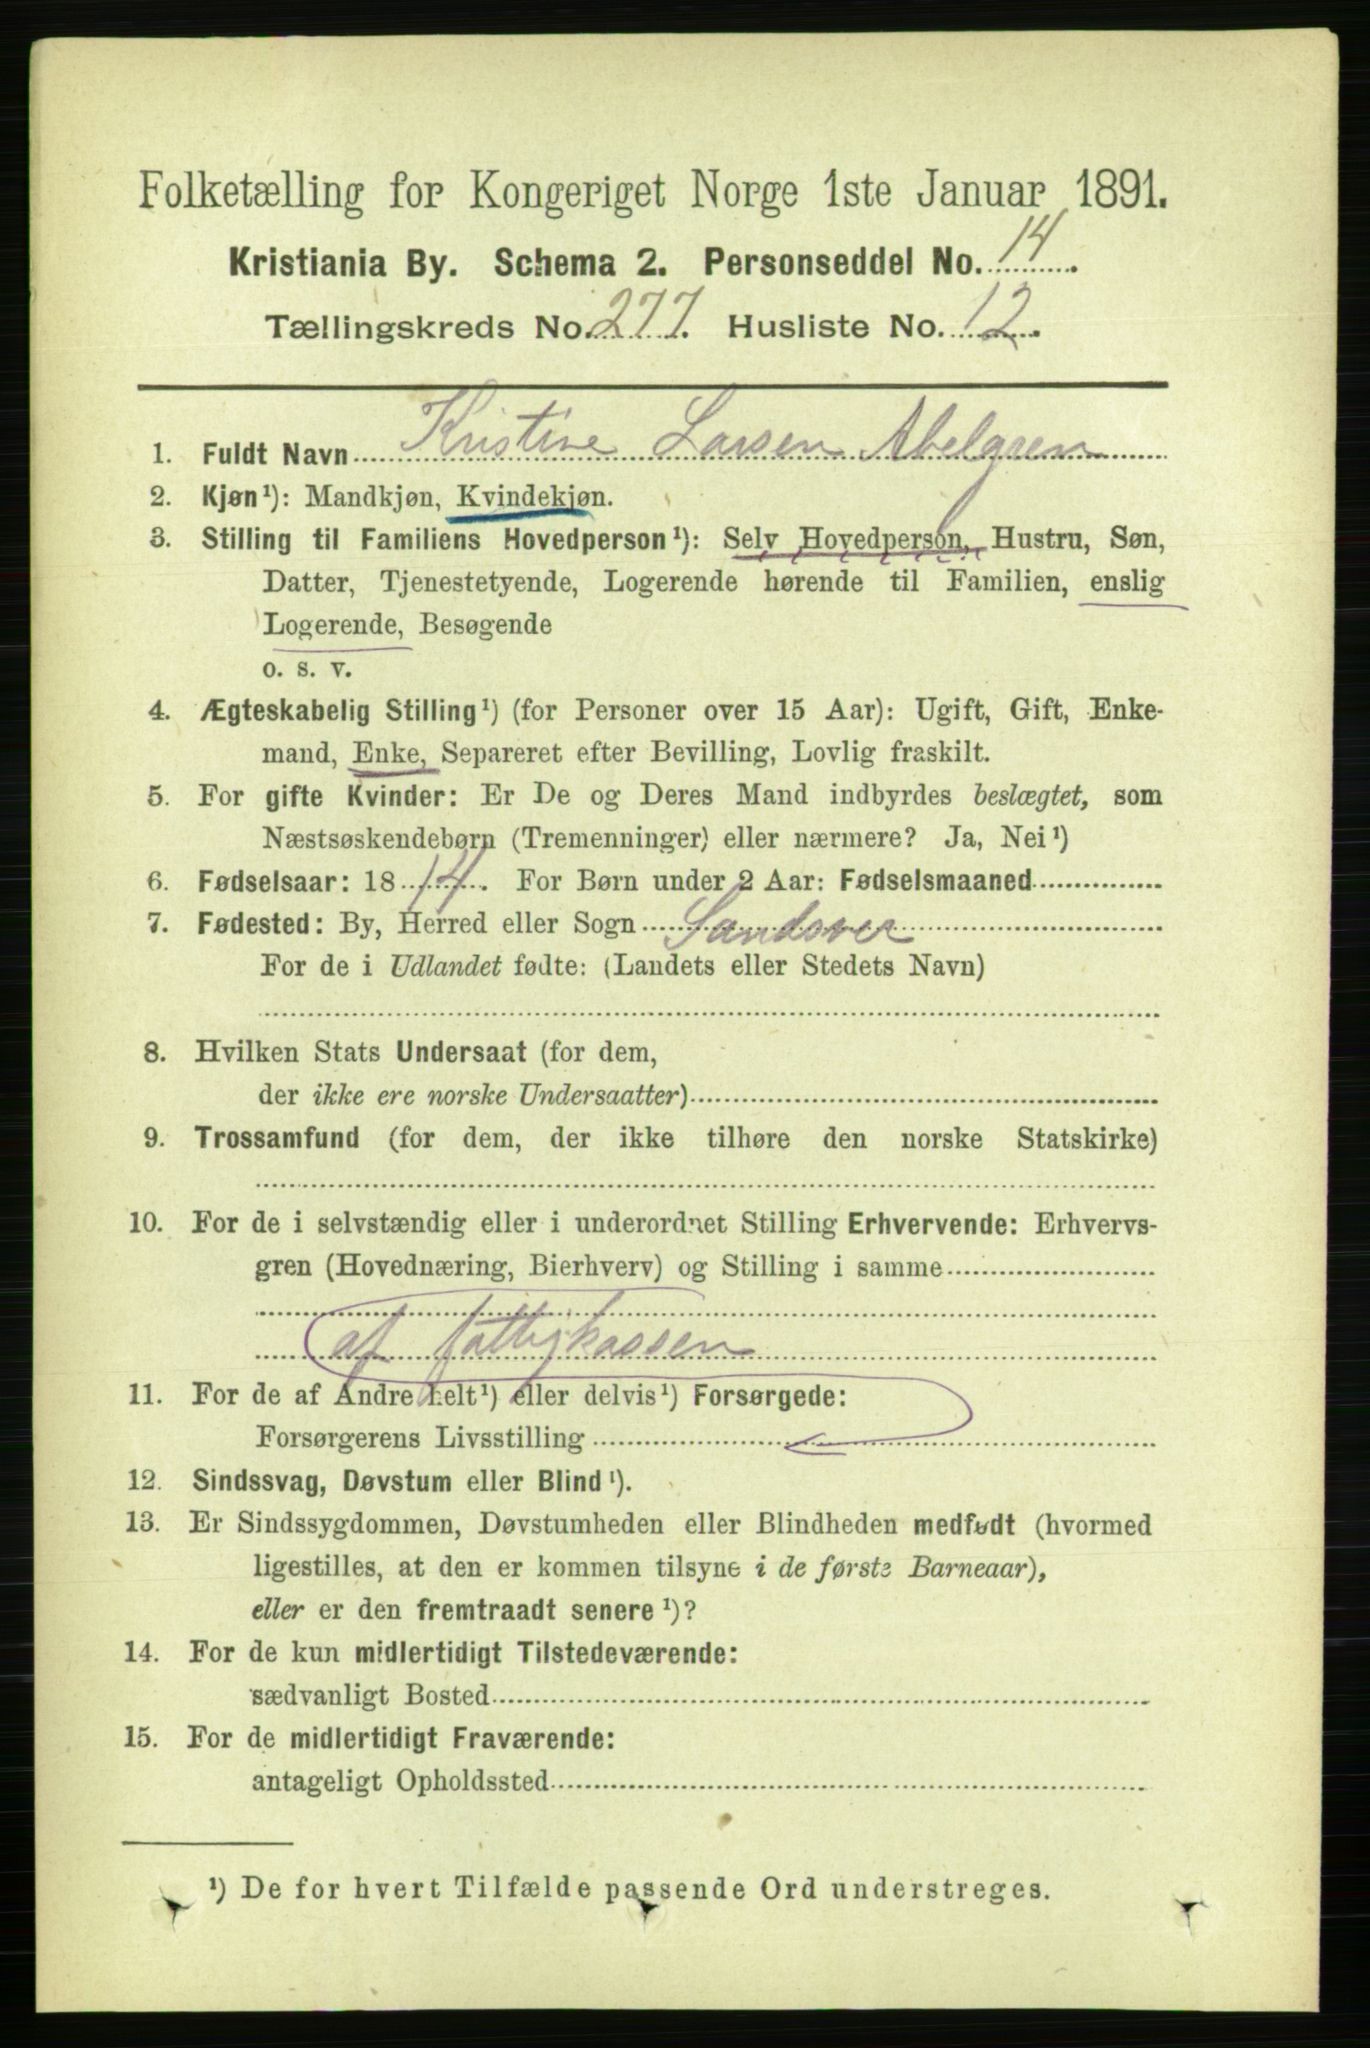 Folketælling for Kongeriget Norge 1ste Januar 1891.
Kristiania By. Schema 2. Personseddel No. 14.
Tællingskreds No. 277. Husliste No. 12.
1. Fuldt Navn Kristine Larsen Abelgren
2. Kjøn¹): Mandkjøn, Kvindekjøn.
3. Stilling til Familiens Hovedperson¹): Selv Hovedperson, Hustru, Søn,
Datter, Tjenestetyende, Logerende hørende til Familien, enslig
Logerende, Besøgende
o. s. v.
4. Ægteskabelig Stilling¹) (for Personer over 15 Aar): Ugift, Gift, Enke-
mand, Enke, Separeret efter Bevilling, Lovlig fraskilt.
5. For gifte Kvinder: Er De og Deres Mand indbyrdes beslægtet, som
Næstsøskendebørn (Tremenninger) eller nærmere? Ja, Nei¹)
6. Fødselsaar: 1814. For Børn under 2 Aar: Fødselsmaaned
7. Fødested: By, Herred eller Sogn Sandsver
For de i Udlandet fødte: (Landets eller Stedets Navn)
8. Hvilken Stats Undersaat (for dem,
der ikke ere norske Undersaatter)
9. Trossamfund (for dem, der ikke tilhøre den norske Statskirke)
10. For de i selvstændig eller i underordnet Stilling Erhvervende: Erhvervs-
gren (Hovednæring, Bierhverv) og Stilling i samme
af fattigkassen
11. For de af Andre helt¹) eller delvis¹) Forsørgede:
Forsørgerens Livsstilling
12. Sindssvag, Døvstum eller Blind¹).
13. Er Sindssygdommen, Døvstumheden eller Blindheden medfødt (hvormed
ligestilles, at den er kommen tilsyne i de første Barneaar),
eller er den fremtraadt senere¹)?
14. For de kun midlertidigt Tilstedeværende:
sædvanligt Bosted
15. For de midlertidigt Fraværende:
antageligt Opholdssted
¹) De for hvert Tilfælde passende Ord understreges.